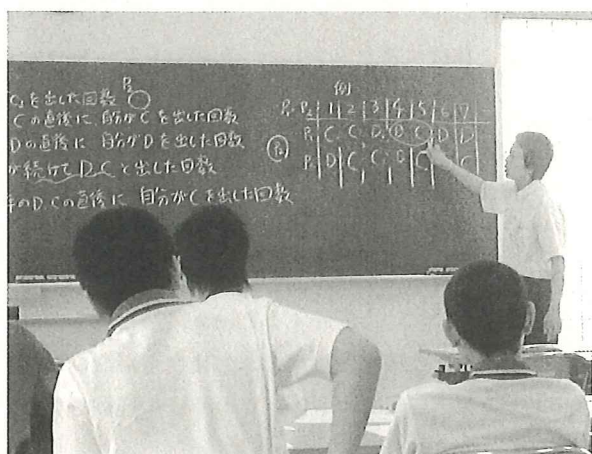 Cを出した回数 P₂
Cの直後に、自分がCを出した回数
Dの直後に 自分がDを出した回数
続けてD.Cと出した回数
のD.Cの直後に 自分がCを出した回数
例
1 2 3 4 5 6 7
P₁ C C D D C D D
P₂ D C C D C C